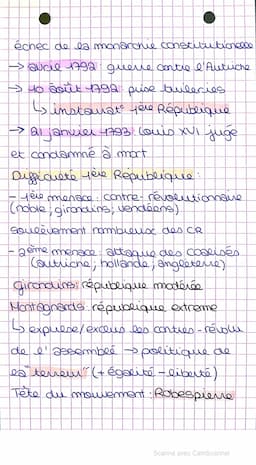 échec de la monarchie constitutionelle
→ avril 1792 : guerre contre l'Autriche
→ 10 août 1792 : prise tuileries
↳ instaurat° 1ère République
→ 21 janvier 1793 : Louis XVI jugé
et condamné à mort
Difficulté 1ère République :
- 1ère menace : contre-révolutionnaire
(noble, girondins, vendéens)
soulèvement nombreux des CR
- 2ème menace : attaque des coalisés
(autriche, hollande, angleterre)
Girondins : république modérée
Montagnards : république extreme
↳ expulse/exclus les contres-révolu
de l'assemblée → politique de
la "terreur" (+ égalité - liberté)
Tête du mouvement : Robespierre
Scanné avec CamScanner